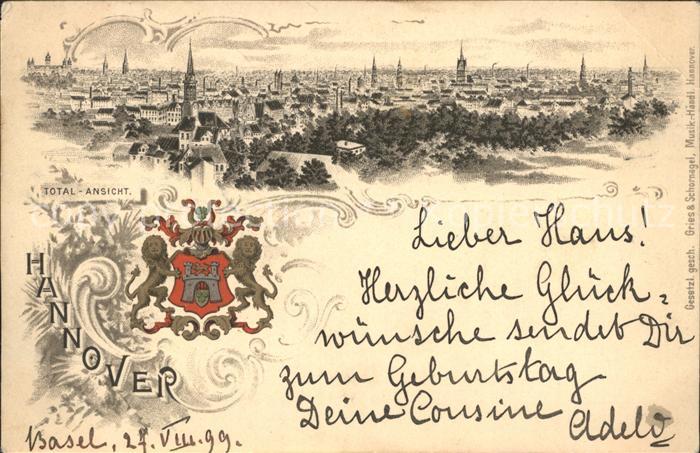 TOTAL - ANSICHT.
HANNOVER
Lieber Hans!
Herzliche Glück-
wünsche sendet Dir
zum Geburtstag
Deine Cousine
Basel, 27. VIII. 99.
Gesetzl. gesch. Gries & Schornagel, Musik-Handl. Hannover.